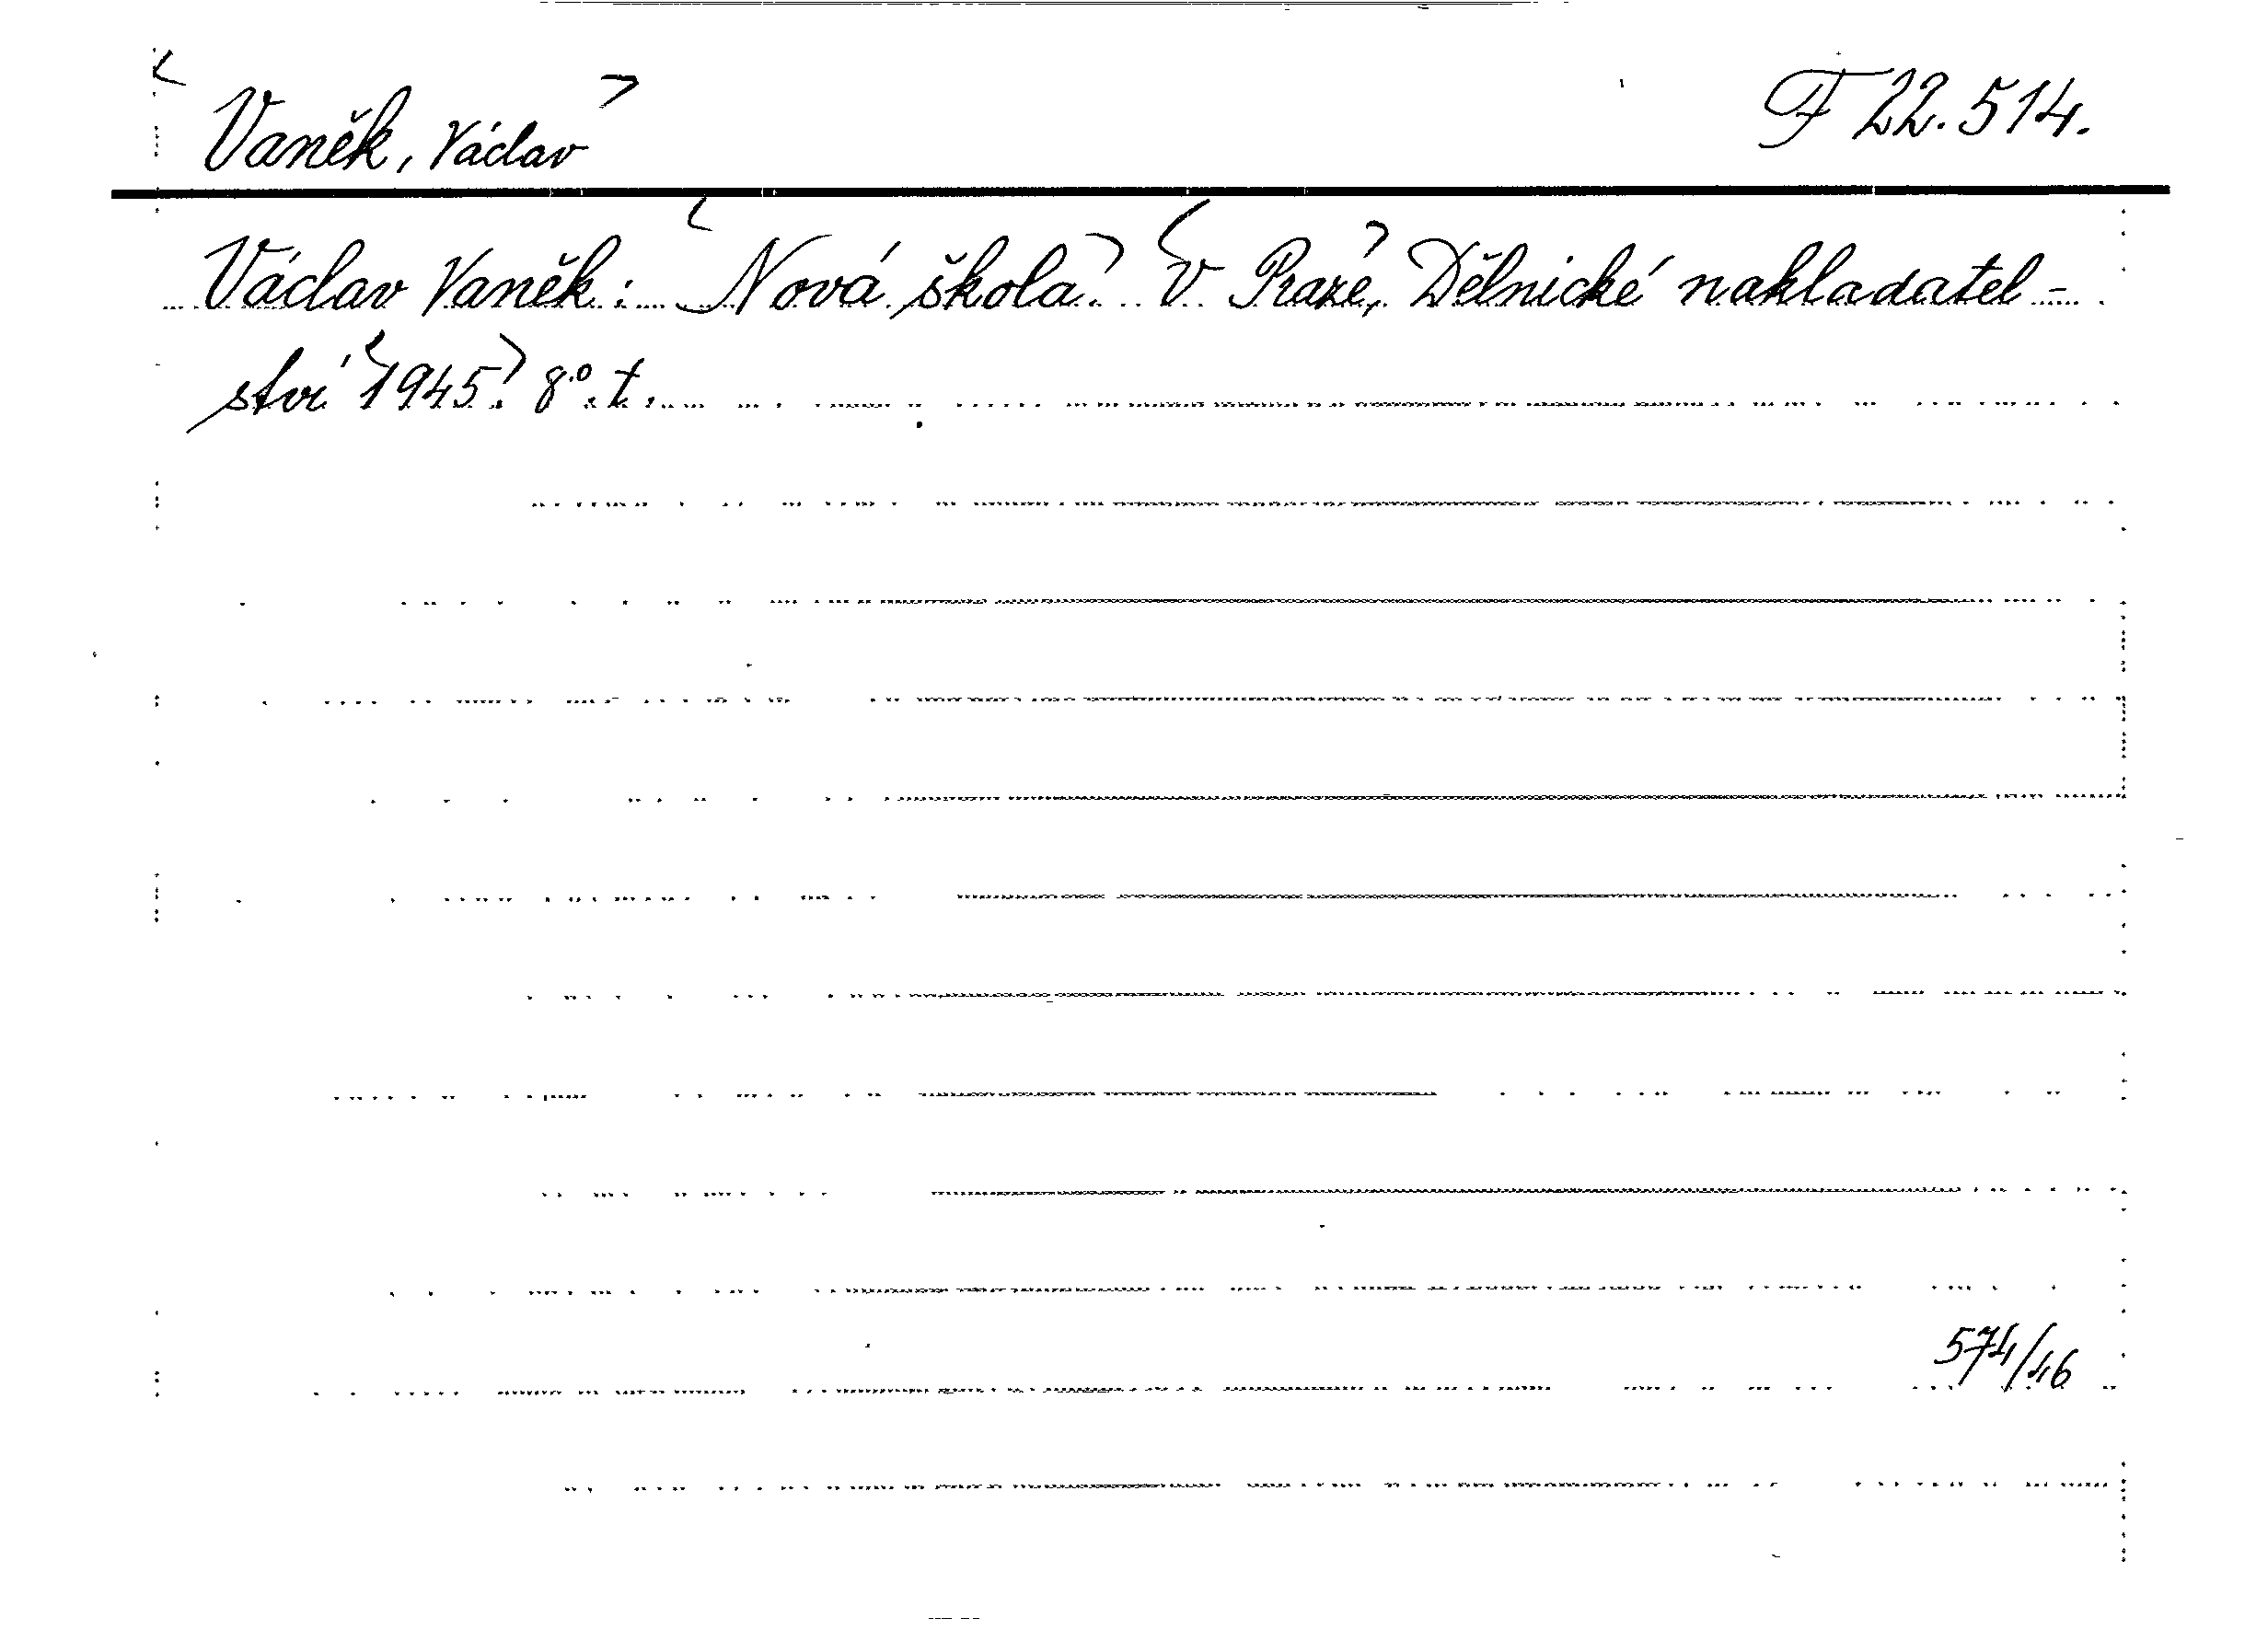 Vaněk, Václav
F 22.514.
Václav Vaněk: Nová škola. V Praze, Dělnické nakladatel-
ství 1945. 8° t.
574/46